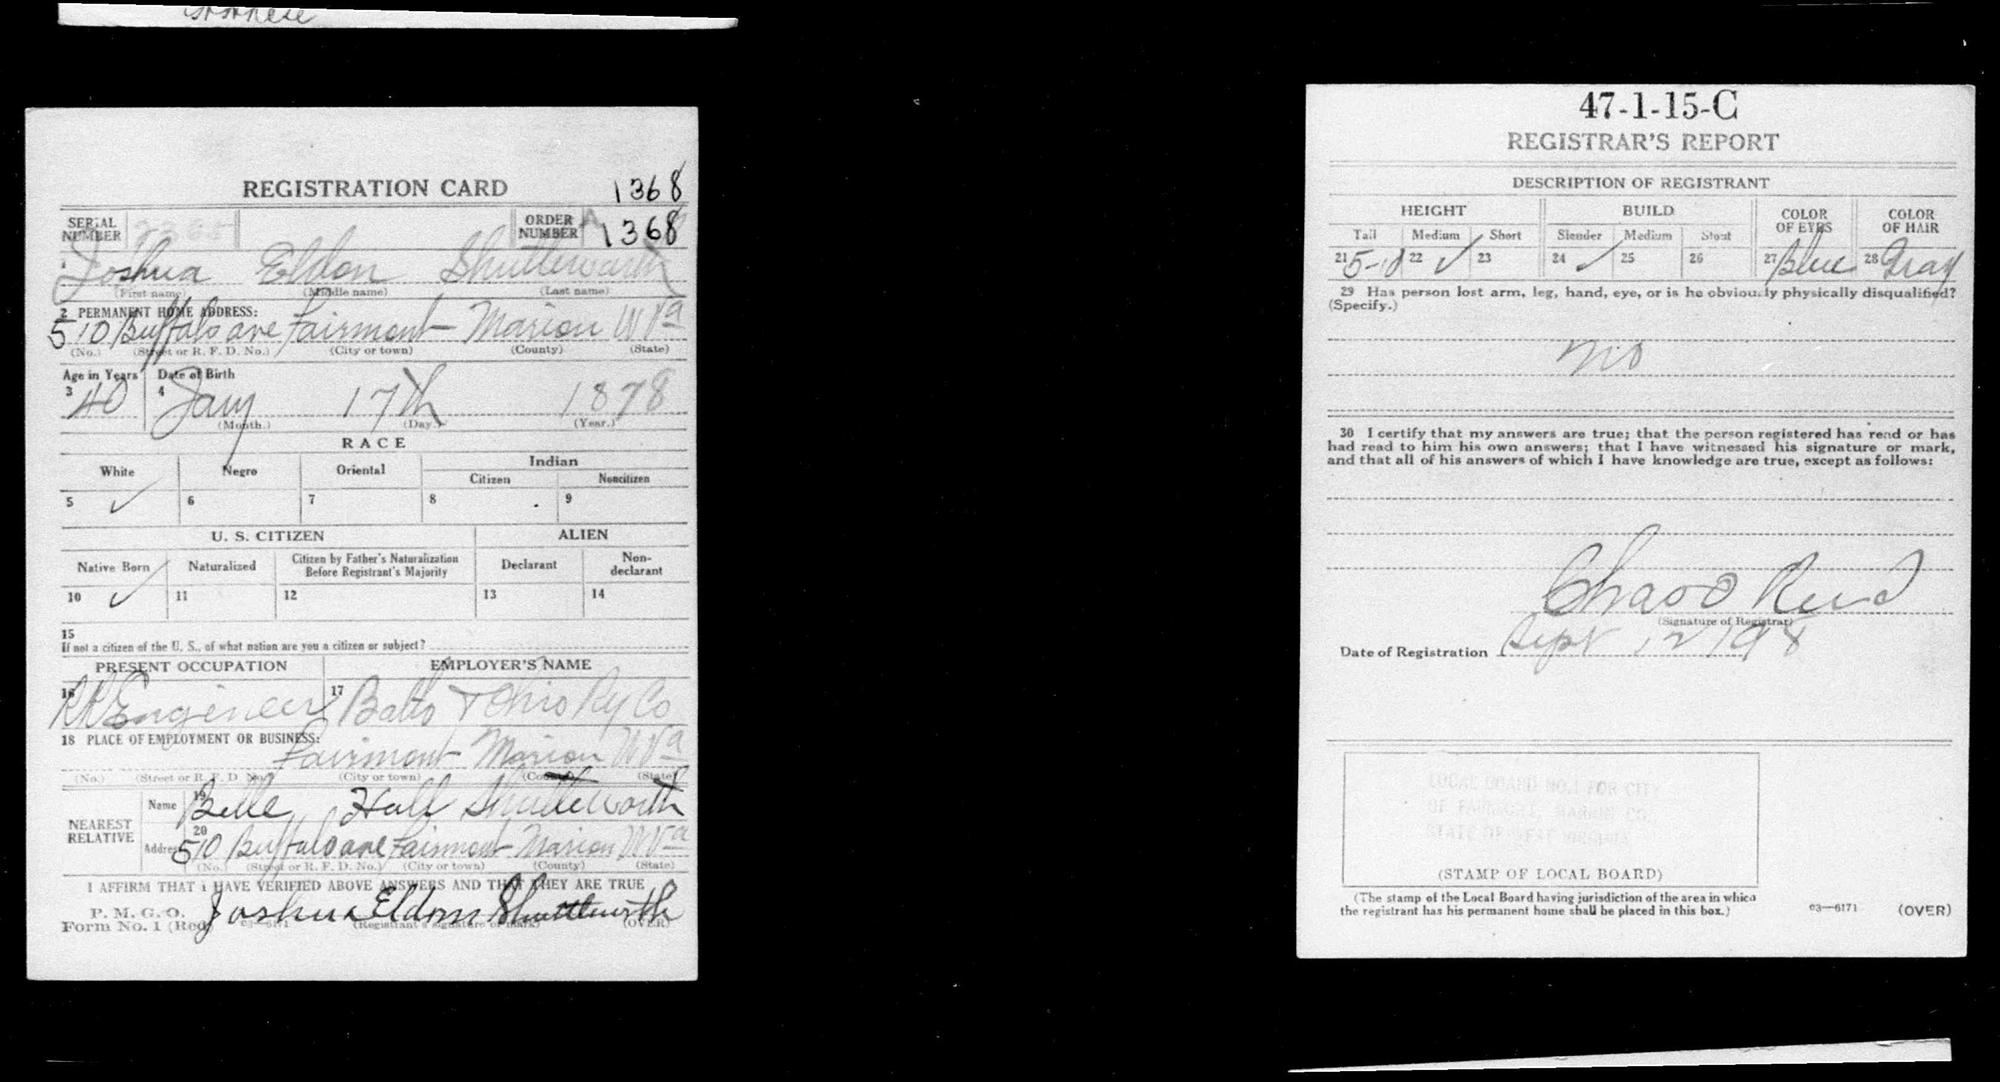 REGISTRATION CARD 1368
SERIAL NUMBER ORDER NUMBER A 1368
1 Joshua Eldon Shuttleworth
(First name) (Middle name) (Last name)
2 PERMANENT HOME ADDRESS:
510 Buffalo ave Fairmont Marion W Va
(No.) (Street or R. F. D. No.) (City or town) (County) (State)
Age in Years Date of Birth
3 40 4 Jany 17th 1878
(Month.) (Day.) (Year.)
RACE
White Negro Oriental Indian
Citizen Noncitizen
5 ✓ 6 7 8 9
U. S. CITIZEN ALIEN
Native Born Naturalized Citizen by Father's Naturalization Before Registrant's Majority Declarant Non-declarant
10 ✓ 11 12 13 14
15
If not a citizen of the U. S., of what nation are you a citizen or subject?
PRESENT OCCUPATION EMPLOYER'S NAME
16 RR Engineer 17 Balto & Ohio Ry Co
18 PLACE OF EMPLOYMENT OR BUSINESS:
Fairmont Marion W Va
(No.) (Street or R. F. D. No.) (City or town) (County) (State)
NEAREST RELATIVE
Name 19 Belle Hall Shuttleworth
Address 20 510 Buffalo ave Fairmont Marion W Va
(No.) (Street or R. F. D. No.) (City or town) (County) (State)
I AFFIRM THAT I HAVE VERIFIED ABOVE ANSWERS AND THAT THEY ARE TRUE
P. M. G. O.
Form No. 1 (Red) 03—6171 Joshua Eldon Shuttleworth
(Registrant's signature or mark) (OVER)
47-1-15-C
REGISTRAR'S REPORT
DESCRIPTION OF REGISTRANT
HEIGHT BUILD COLOR OF EYES COLOR OF HAIR
Tall Medium Short Slender Medium Stout
21 5-10 22 ✓ 23 24 ✓ 25 26 27 Blue 28 Gray
29 Has person lost arm, leg, hand, eye, or is he obviously physically disqualified?
(Specify.)
no
30 I certify that my answers are true; that the person registered has read or has
had read to him his own answers; that I have witnessed his signature or mark,
and that all of his answers of which I have knowledge are true, except as follows:
Chas O Reed
(Signature of Registrar)
Date of Registration Sept 12 1918
LOCAL BOARD NO. 1 FOR CITY
OF FAIRMONT, MARION CO.,
STATE OF WEST VIRGINIA
(STAMP OF LOCAL BOARD)
(The stamp of the Local Board having jurisdiction of the area in which
the registrant has his permanent home shall be placed in this box.)
03—6171 (OVER)